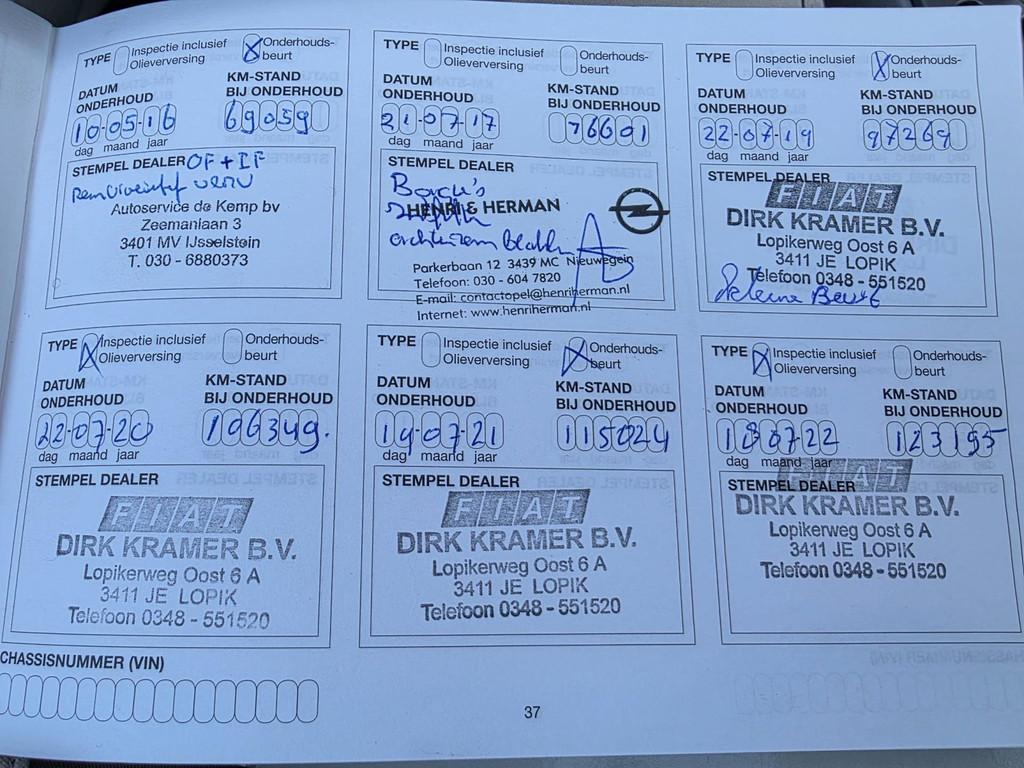 TYPE Inspectie inclusief Olieverversing X Onderhouds-beurt
DATUM ONDERHOUD
KM-STAND BIJ ONDERHOUD
10-05-16
69059
dag maand jaar
STEMPEL DEALER OF + IF
Autoservice de Kemp bv
Zeemanlaan 3
3401 MV IJsselstein
T. 030 - 6880373
TYPE Inspectie inclusief Olieverversing Onderhouds-beurt
DATUM ONDERHOUD
KM-STAND BIJ ONDERHOUD
21-07-17
76601
dag maand jaar
STEMPEL DEALER
HENRI & HERMAN
Parkerbaan 12 3439 MC Nieuwegein
Telefoon: 030 - 604 7820
E-mail: contactopel@henriherman.nl
Internet: www.henriherman.nl
TYPE Inspectie inclusief Olieverversing X Onderhouds-beurt
DATUM ONDERHOUD
KM-STAND BIJ ONDERHOUD
22-07-19
97269
dag maand jaar
STEMPEL DEALER
FIAT
DIRK KRAMER B.V.
Lopikerweg Oost 6 A
3411 JE LOPIK
Telefoon 0348 - 551520
kleine Beurt
TYPE X Inspectie inclusief Olieverversing Onderhouds-beurt
DATUM ONDERHOUD
KM-STAND BIJ ONDERHOUD
22-07-20
106349.
dag maand jaar
STEMPEL DEALER
FIAT
DIRK KRAMER B.V.
Lopikerweg Oost 6 A
3411 JE LOPIK
Telefoon 0348 - 551520
TYPE Inspectie inclusief Olieverversing X Onderhouds-beurt
DATUM ONDERHOUD
KM-STAND BIJ ONDERHOUD
19-07-21
115024
dag maand jaar
STEMPEL DEALER
FIAT
DIRK KRAMER B.V.
Lopikerweg Oost 6 A
3411 JE LOPIK
Telefoon 0348 - 551520
TYPE X Inspectie inclusief Olieverversing Onderhouds-beurt
DATUM ONDERHOUD
KM-STAND BIJ ONDERHOUD
180722
123195
dag maand jaar
STEMPEL DEALER
FIAT
DIRK KRAMER B.V.
Lopikerweg Oost 6 A
3411 JE LOPIK
Telefoon 0348 - 551520
CHASSISNUMMER (VIN)
37